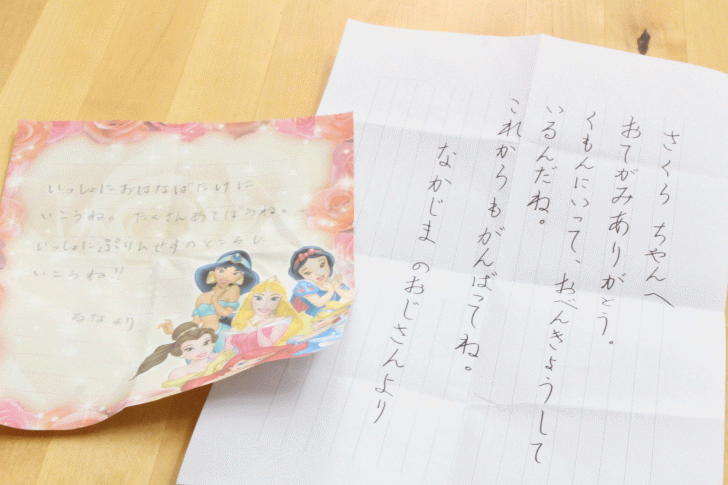 いっしょにおはなばたけに
いこうね。たくさんあそぼうね。
いっしょにぷりんせすのところに
いこうね!!
るなより
さくら ちゃんへ
おてがみありがとう。
くもんにいって、おべんきょうして
いるんだね。
これからもがんばってね。
なかじま のおじさんより